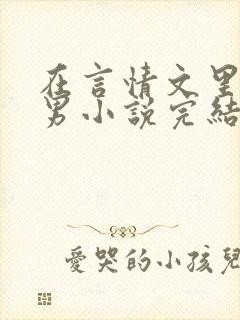 在言情文里
男小說完結
愛哭的小孩兒